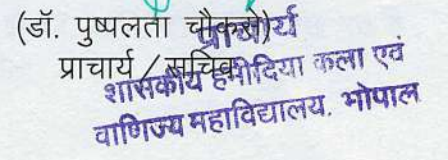 (डॉ. पुष्पलता चौकसे)
प्राचार्य
प्राचार्य / सचिव
शासकीय हमीदिया कला एवं
वाणिज्य महाविद्यालय. भोपाल